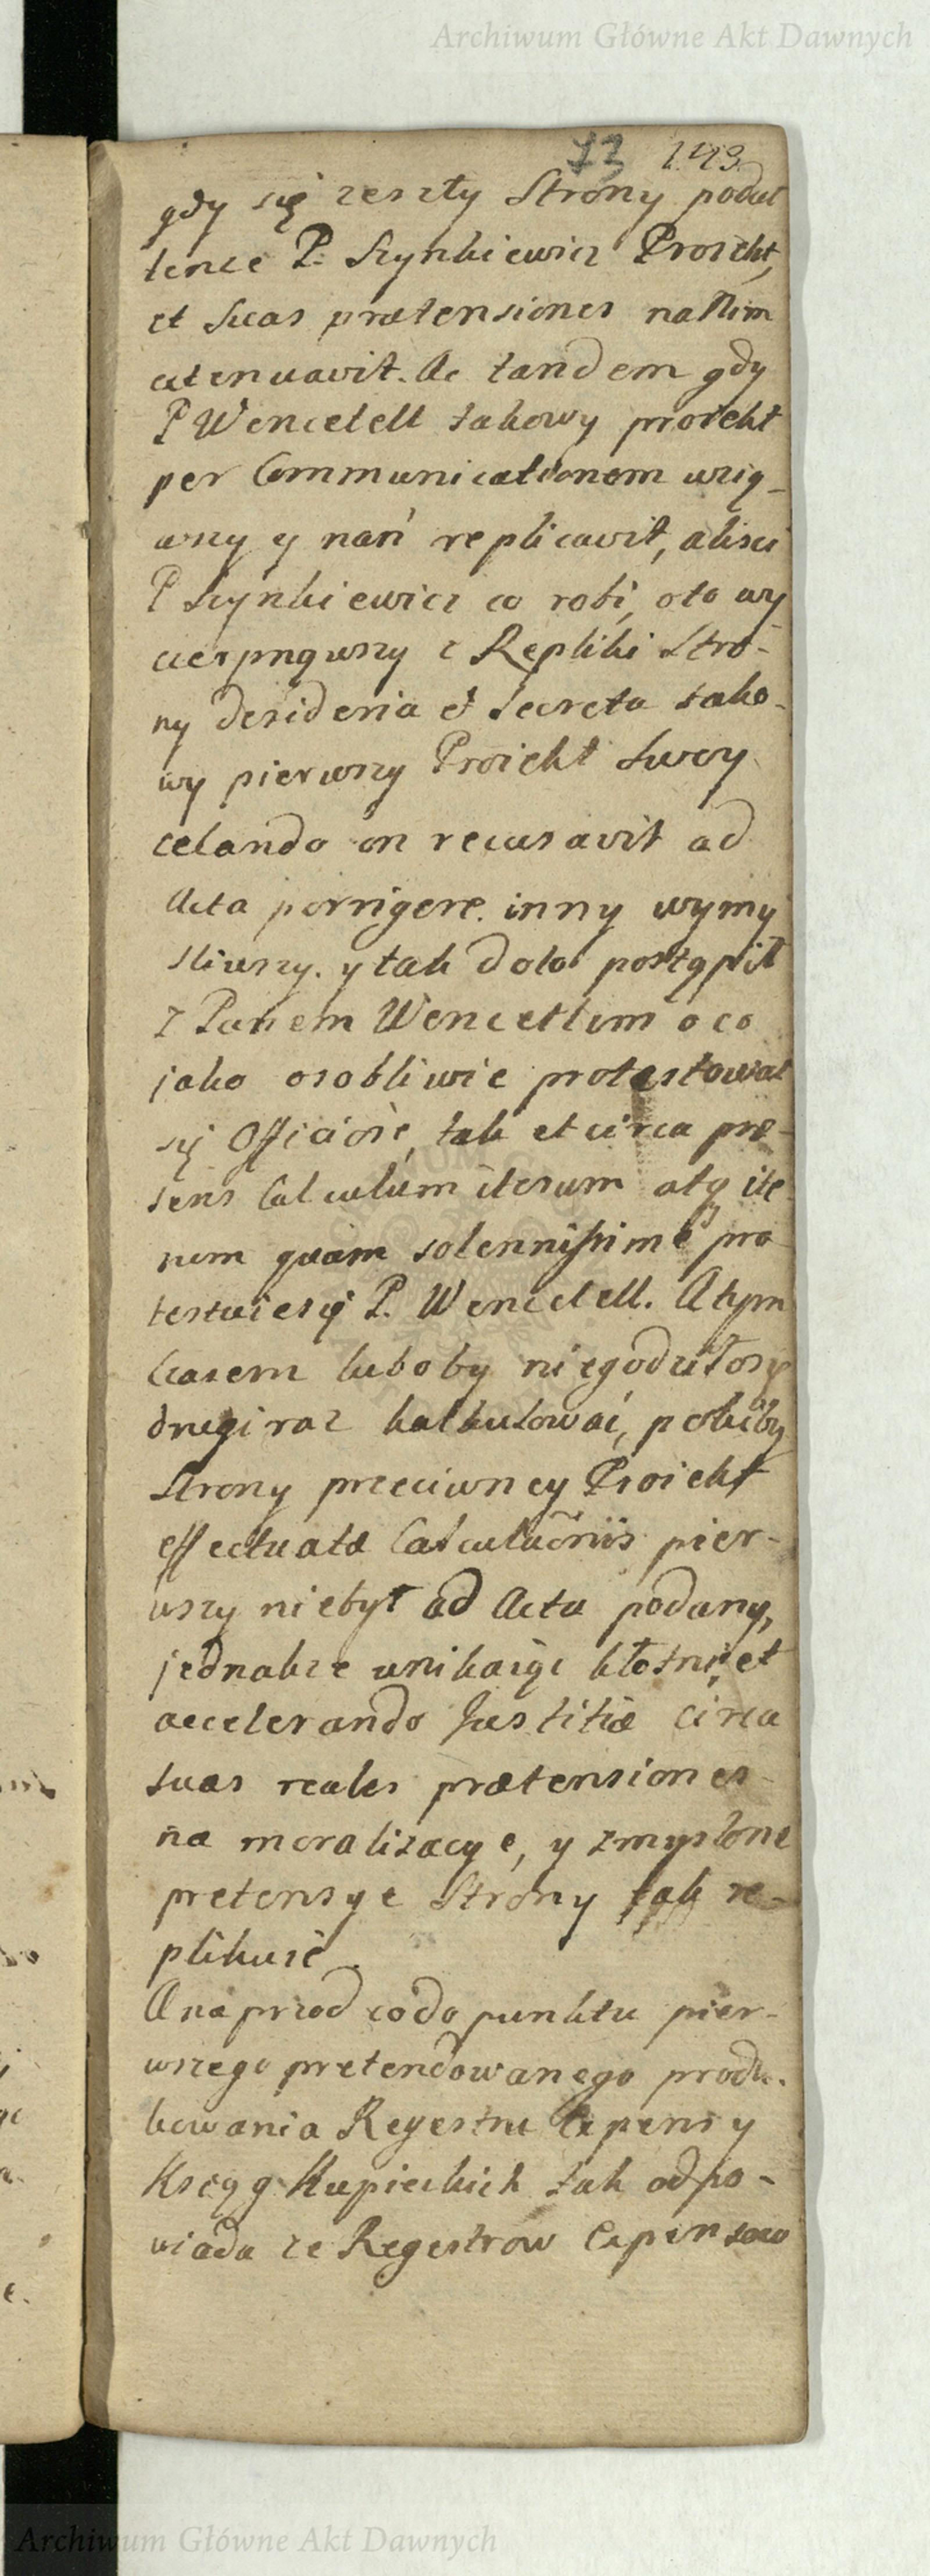 Archiwum Główne Akt Dawnych
73 143
gdy się zeszły Strony podał
tence P. Szynkiewicz Proiekt,
et suas prætensiones na Nim
attenuavit. Ac tandem gdy
P Wencetell takowy proiekt
per Communicationem wzią-
wszy y nań replicavit, aliści
P Szynkiewicz co robi, oto wy
cierpnąwszy z Repliki Stro-
ny desideria et Secreta tako-
wy pierwszy Proiekt Swoy
celando on recusavit ad
Acta porrigere. inny wymy
sliwszy. y tak dolo postąpił
z Panem Wencetlem o co
jako osobliwie protestował
się Officiose, tak et circa præ-
sens Calculum iterum atq ite
rum quam solennissime pro
testuie się P. Wencetell. A tym
Czasem luboby niegodziło się
drugi raz kalkulować, pokiby
Strony przeciwney Proiekt
effectuatæ Calculaõnis pier-
wszy niebył ad Acta podany,
jednakże unikaiąc kłotni, et
accelerando Justitiæ circa
suas reales prætensiones
na moralizacye, y zmyslone
pretensye Strony tak re-
plikuie.
A naprzod co do punktu pier-
wszego pretendowanego produ-
kowania Regestru Expens y
Ksiąg Kupieckich tak odpo-
wiada ze Regestrow Expensow
Archiwum Główne Akt Dawnych